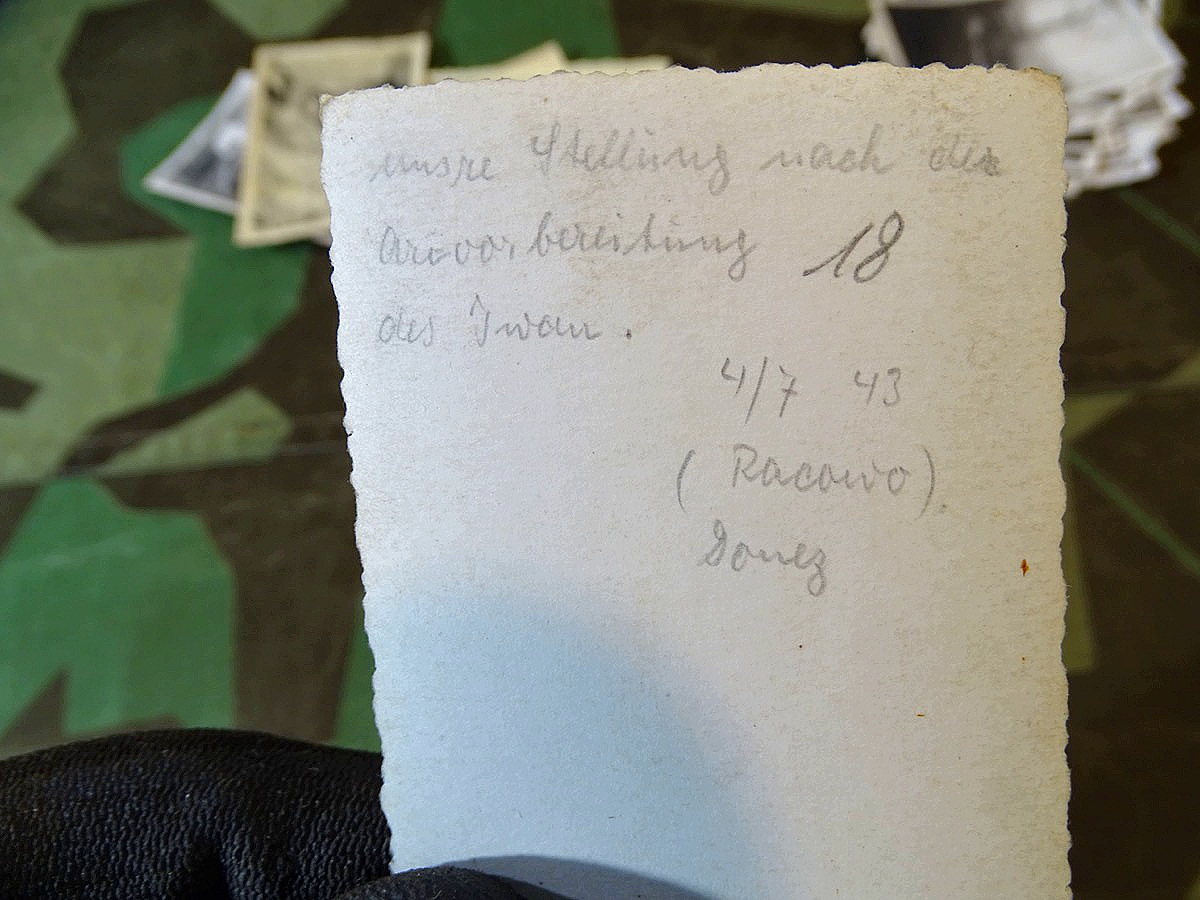 unsre Stellung nach der
Arivorbereitung 18
des Iwan.
4/7 43
(Racowo).
Donez